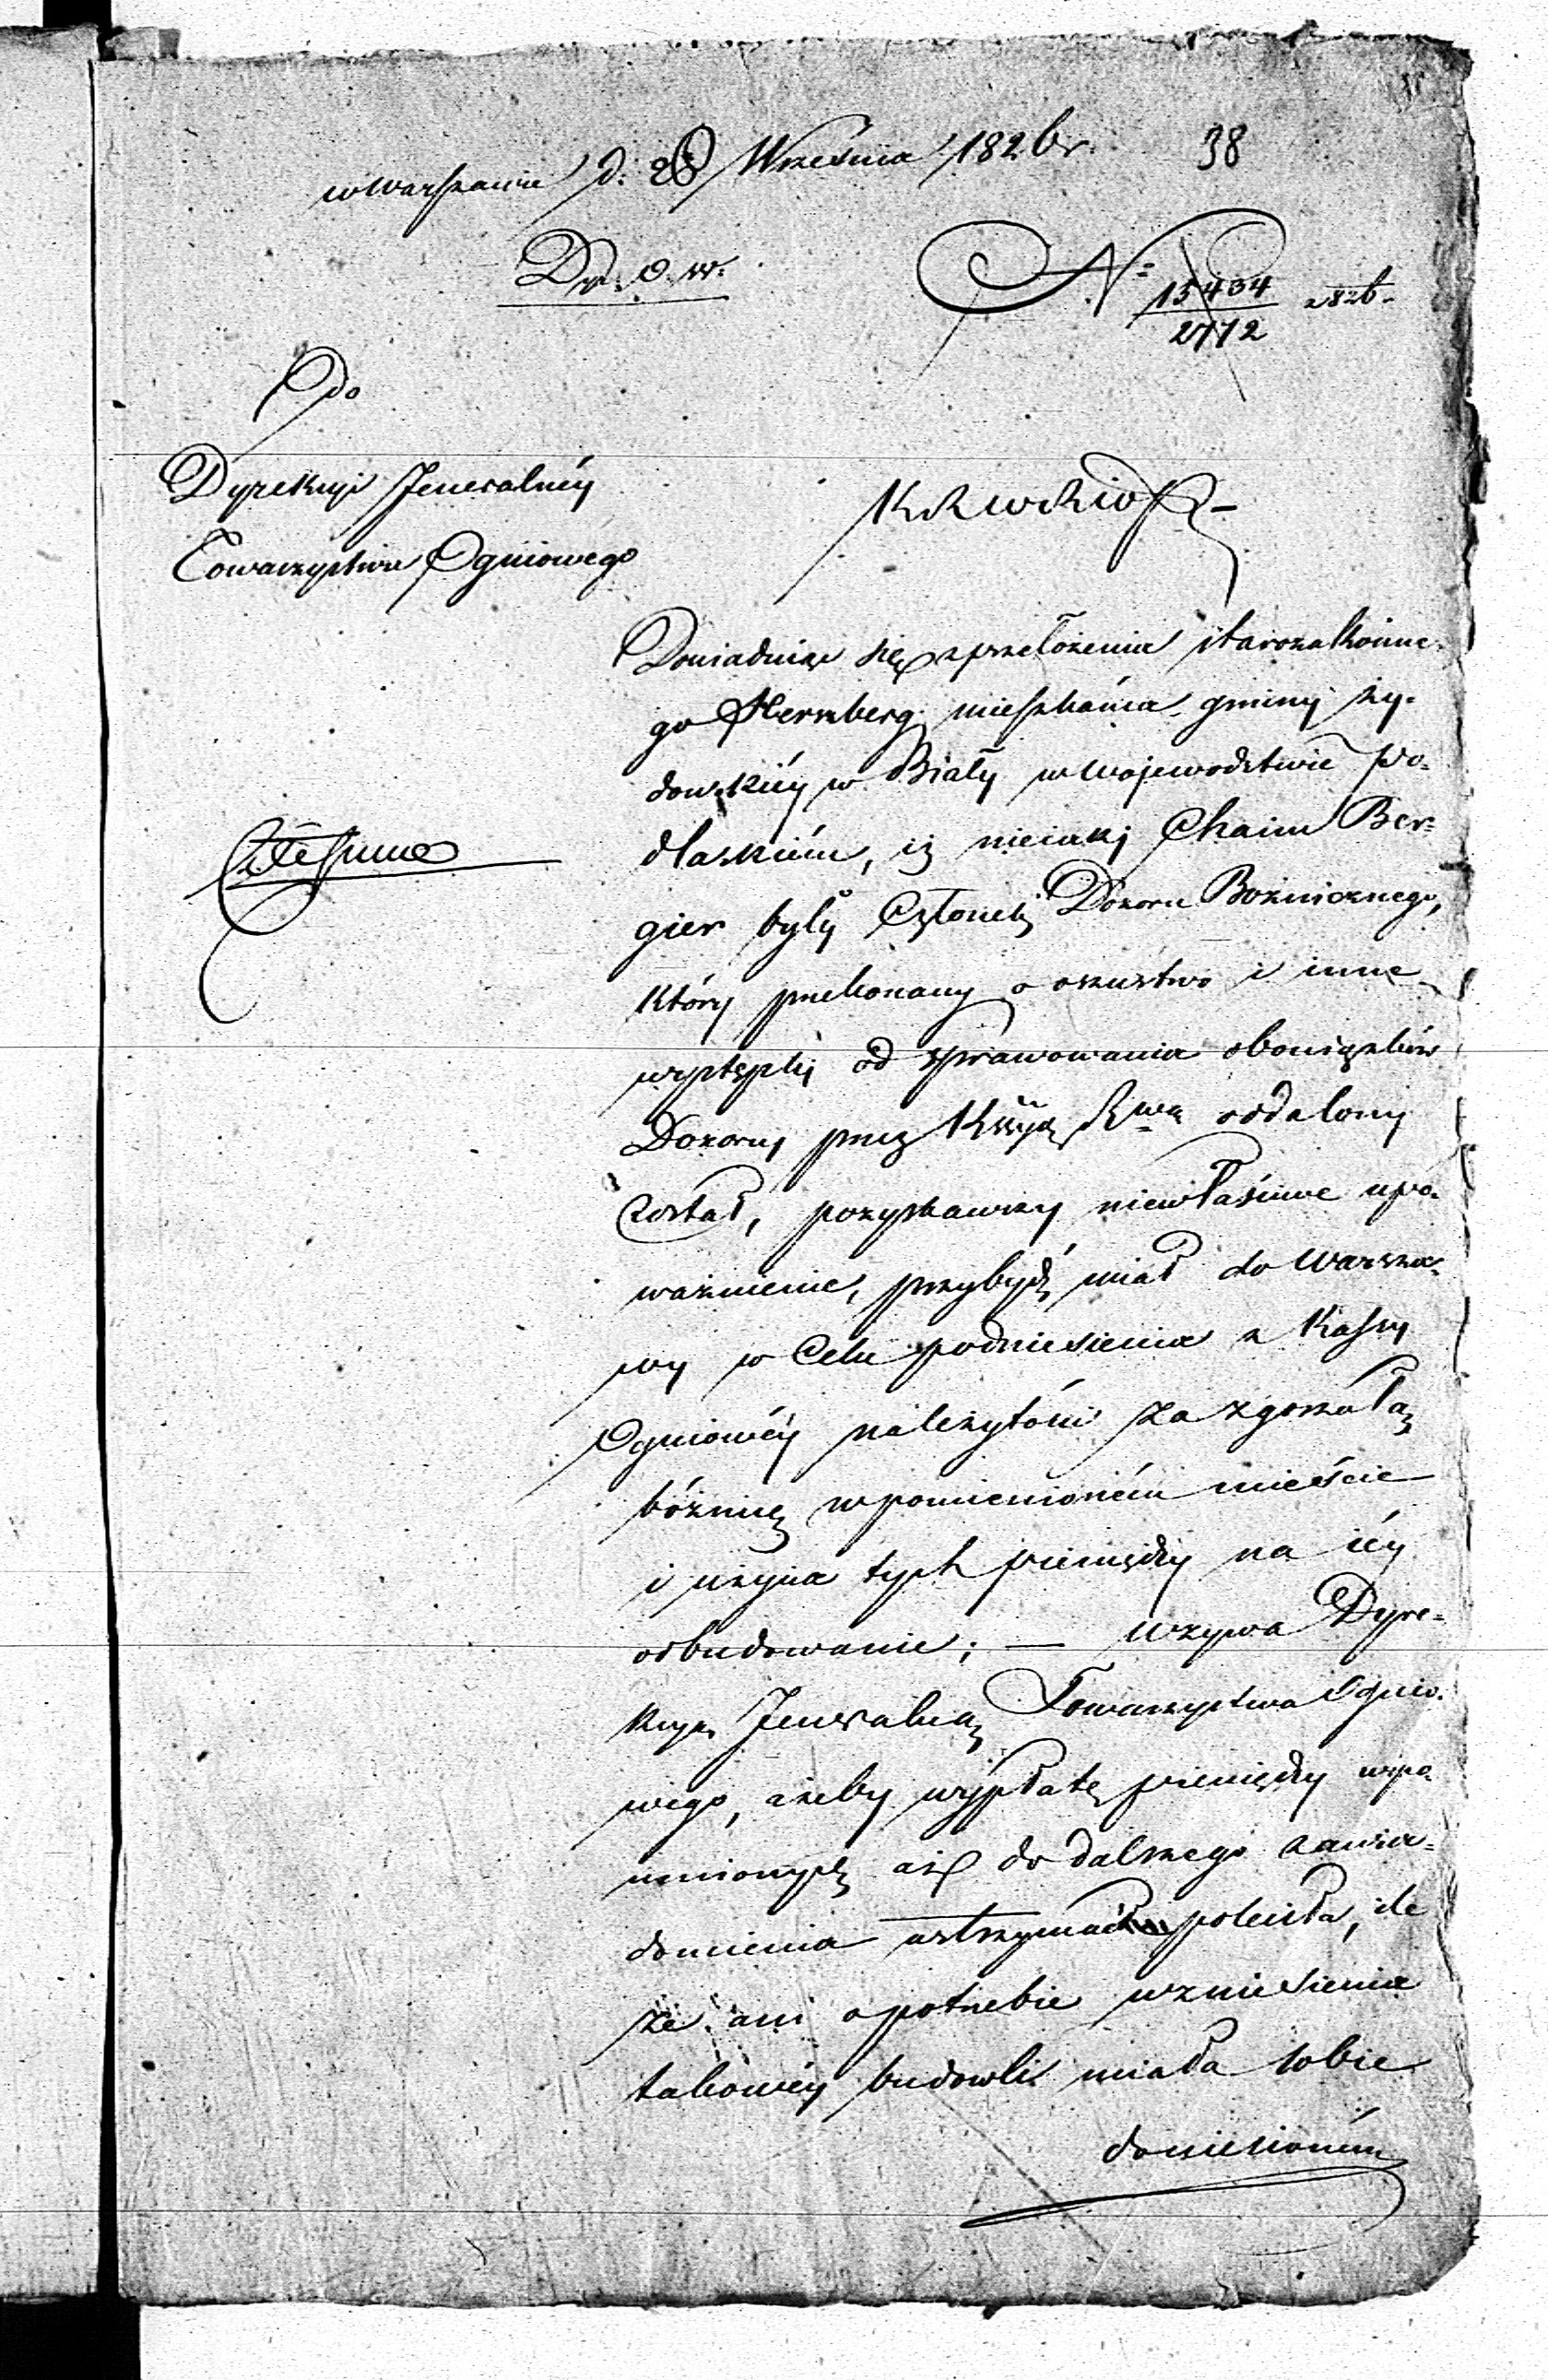 w Warszawie d. 28 Września 1826 r. 38
D. O. W.
No 15434 1826.
2772
Do
Dyrekcyi Jeneralnéy
Towarzystwa Ogniowego
K R W R i O P
Dowiaduiąc się z przełożenia starozakonne-
go Herszberg mieszkańca gminy ży-
dowskiéy w Biały w Województwie Po-
dlaskiém, iż nieiaki Chaim Ber-
gier były Członek Dozoru Bożnicznego,
który przekonany o oszustwo i inne
występki od sprawowania obowiązków
Dozoru przez Kssyą Rwą oddalony
został, pozyskawszy niewłaściwe upo-
ważnienie, przybydź miał do Warsza-
wy w Celu podniesienia z Kassy
Ogniowéy należytości za zgorzałą
bóżnicę w pomienioném mieście
i użycia tych pieniędzy na iéy
odbudowanie; — wzywa Dyre-
kcyą Jeneralną Towarzystwa Ognio-
wego, ażeby wypłatę pieniędzy wspo-
mnionych aż do dalszego zawia-
domienia wstrzymać poleciła, ile
że ani o potrzebie wzniesienia
takowéy budowli miała sobie
doniesioném